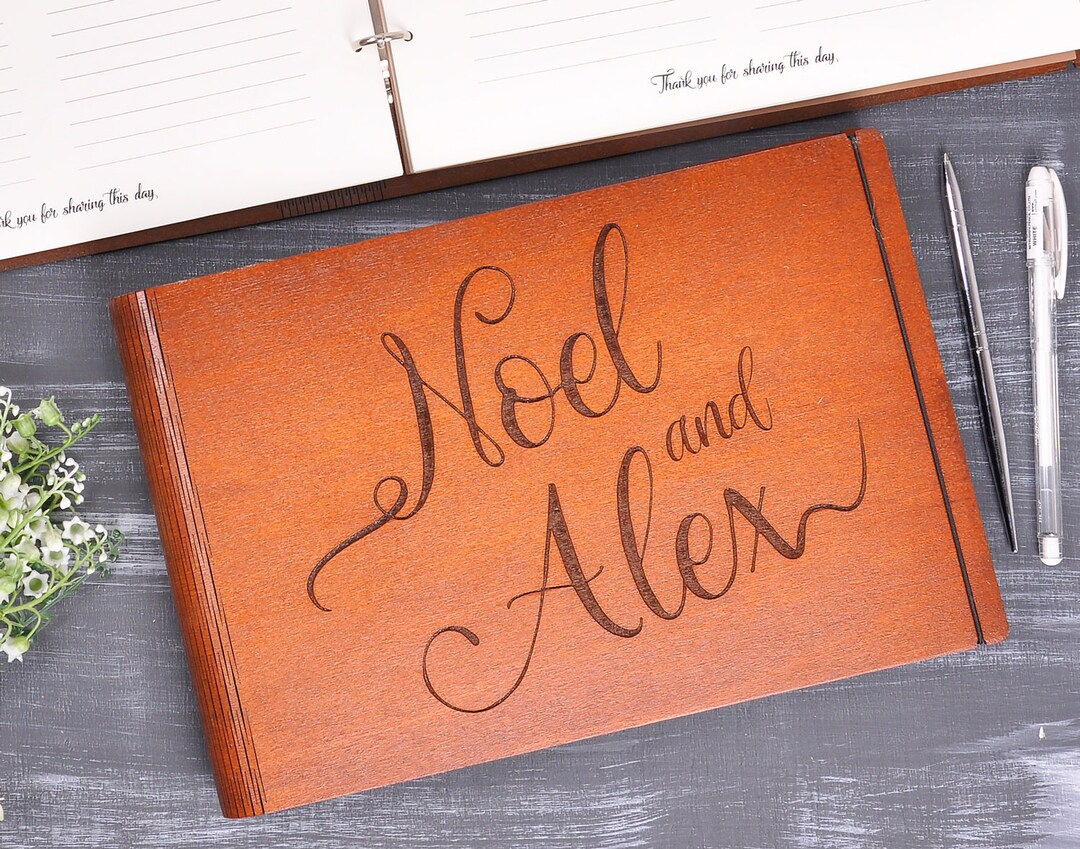 Thank you for sharing this day,
you for sharing this day,
Noel
and
Alex
WHITE